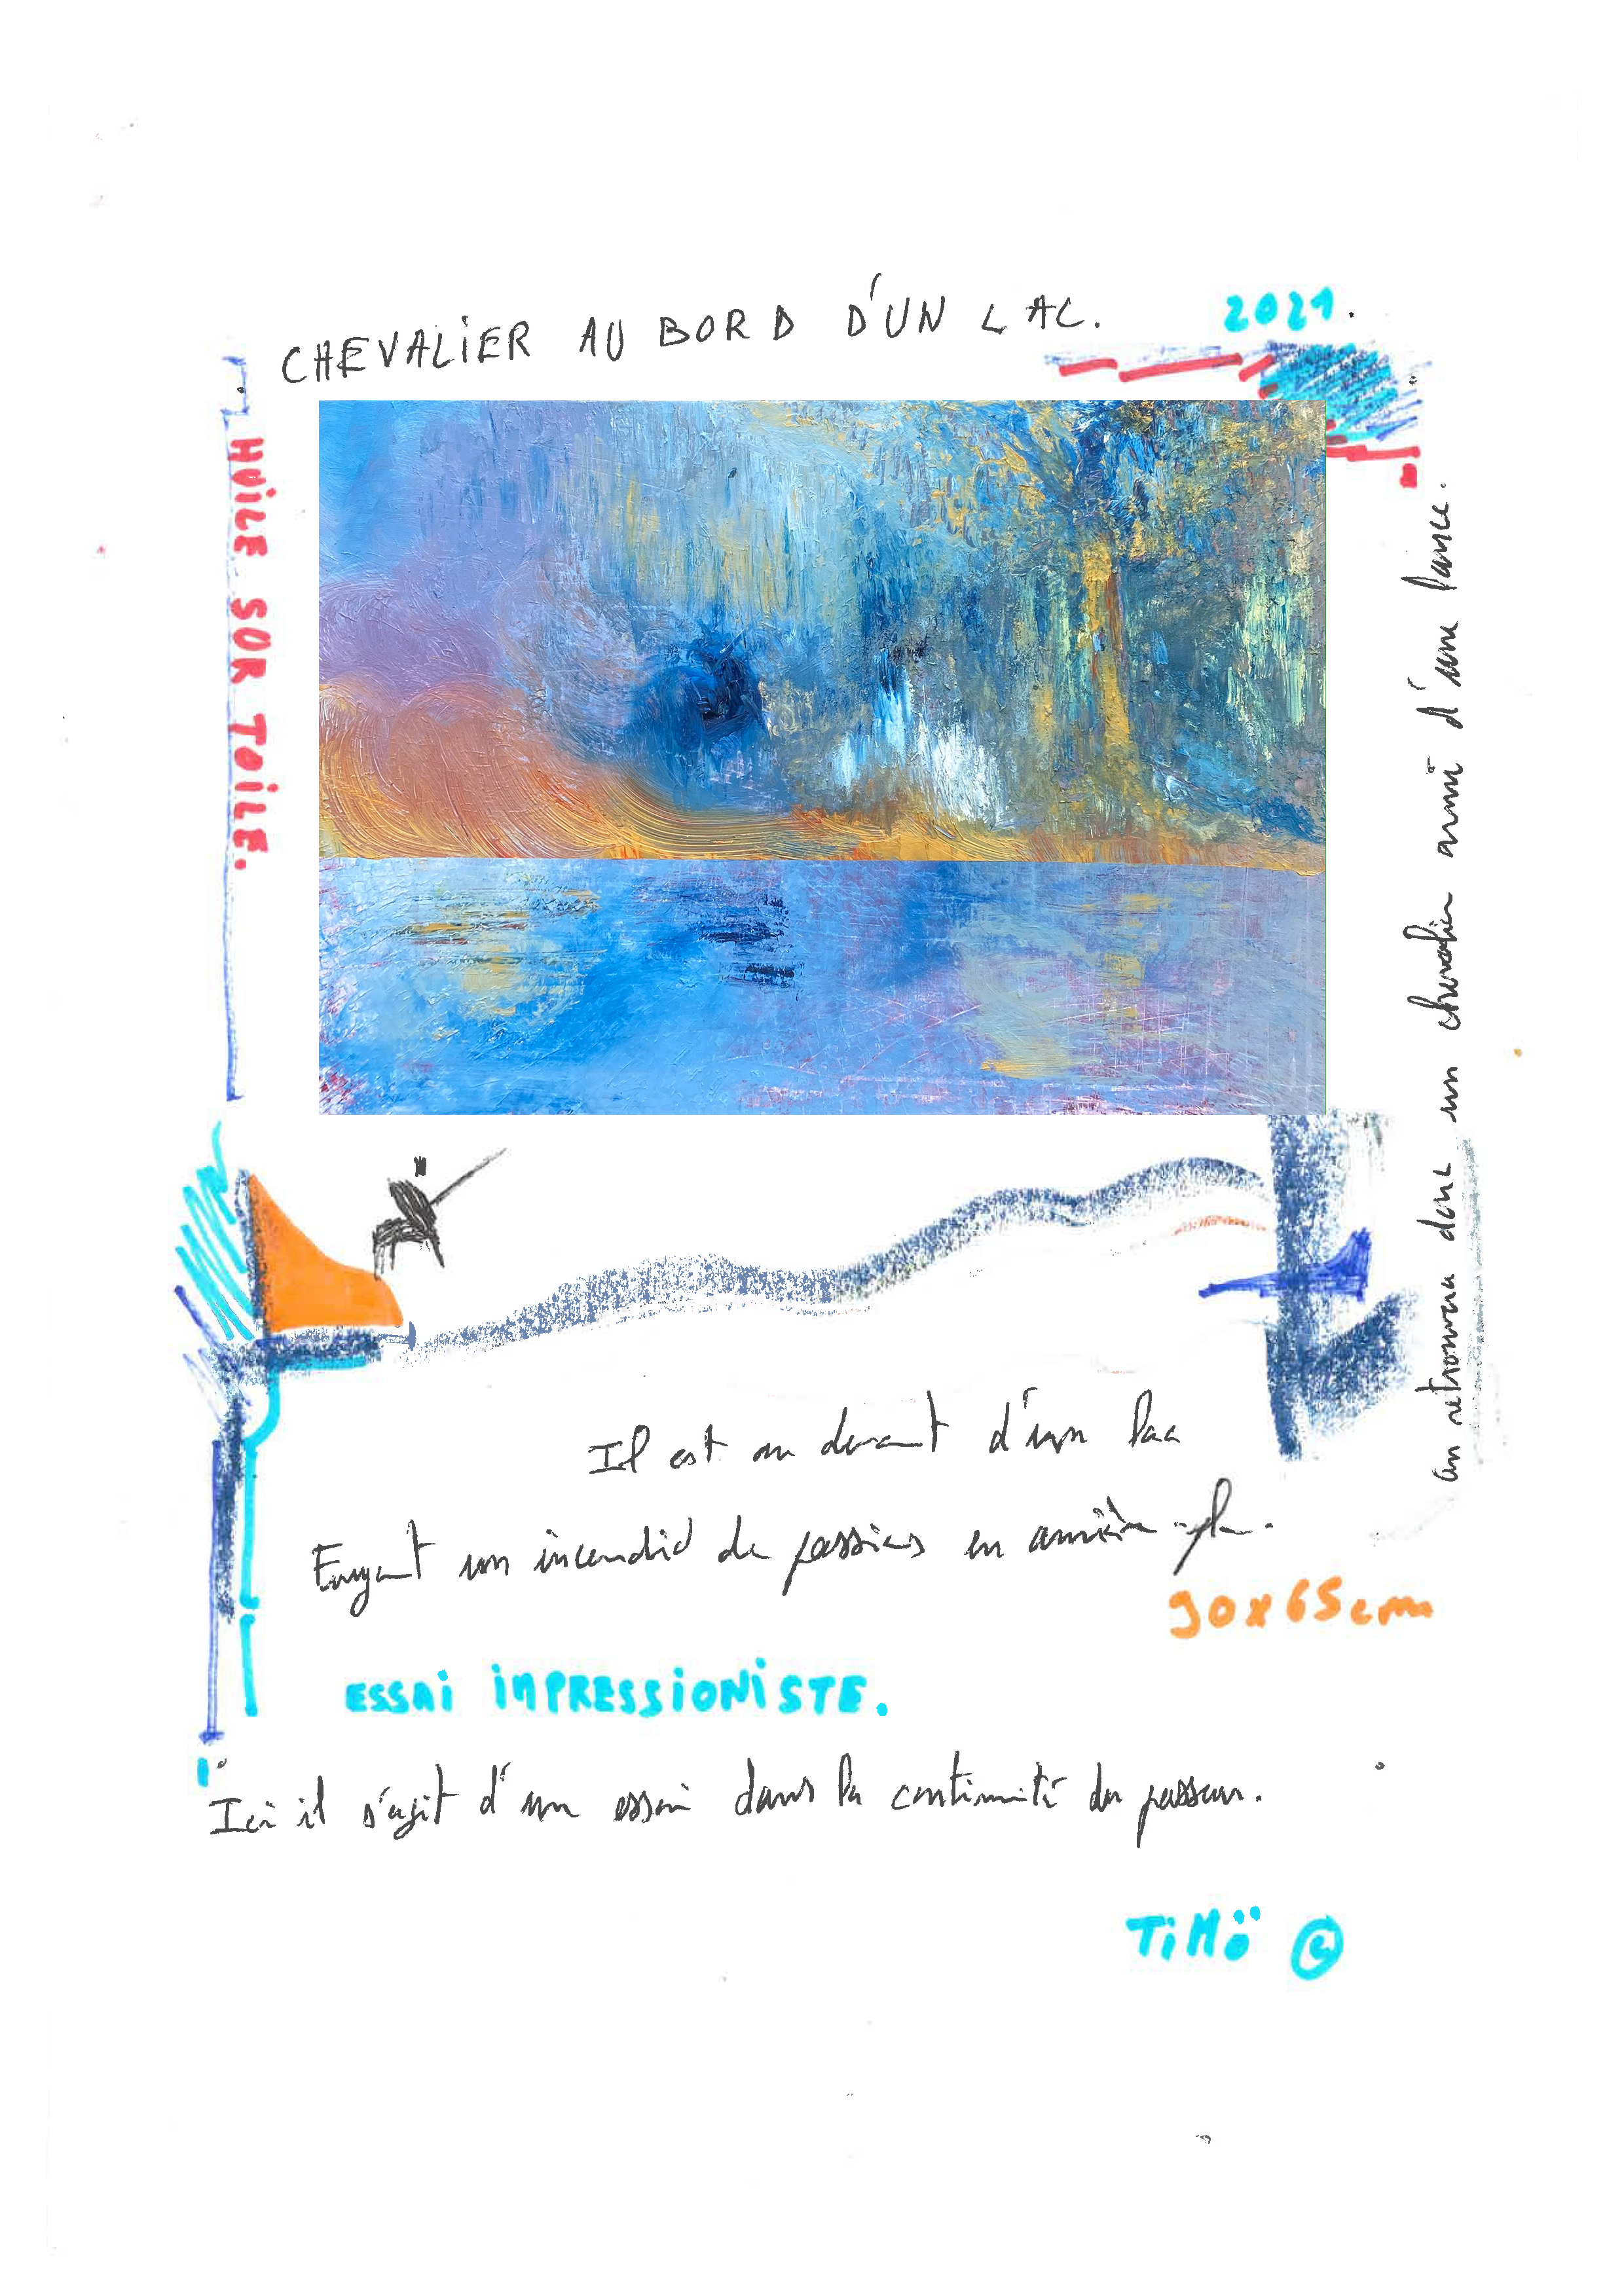 CHEVALiER AU BORD D'UN LAC.
2021.
HUiLE SUR TOiLE.
on retrouvera donc un chevalier armé d'une lance.
Il est au devant d'un lac
un incendie de passions en arrière-plan.
90x65cm
ESSAi iMPRESSiONiSTE.
Ici il s'agit d'un essai dans la continuité du passeur.
TiMö ©